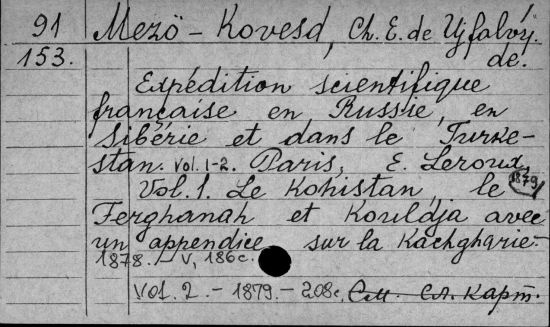 91 Mezö-Kovesd, Ch. E. de Ujfalvy.
153. de.
Expédition scientifique
française en Russie, en
Sibérie et dans le Turke-
stan. Vol. 1-2. Paris, E. Leroux,
1879
Vol. 1. Le Kohistan, le
Ferghanah et Kouldja avec
un appendice sur la Kachgharie.
1878. V, 186c.
Vol. 2. - 1879. - 208c. См. сл. карт.